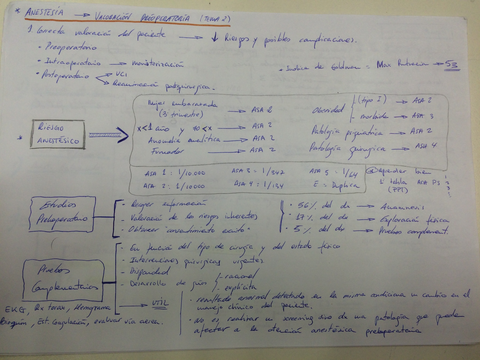 * ANESTESIA → VALORACIÓN PREOPERATORIA (TEMA 2)
1 Correcta valoración del paciente → ↓ Riesgos y posibles complicaciones.
- Preoperatorio
- Intraoperatorio → monitorización
- Postoperatorio
UCI
Reanimación postquirúrgica.
* Índice de Goldman: Max Puntuación → 53
* RIESGO ANESTÉSICO
Mujer embarazada (3er trimestre) → ASA 2
x<1 año y 70<x → ASA 2
Anomalía analítica → ASA 2
Fumador → ASA 2
Obesidad
(tipo I) → ASA 2
morbida → ASA 3
Patología psiquiátrica → ASA 2
Patología quirúrgica → ASA 4
ASA 1 : 1/10000
ASA 2 : 1/10000
ASA 4 : 1/134
ASA 5 : 1/64
E → Duplica
Estudios Preoperatorio
- Recoger información
- Valoración de los riesgos inherentes
- Obtener consentimiento escrito
- 56% del dx → Anamnesis
- 17% del dx → Exploración física
- 5% del dx → Pruebas complement.
Pruebas Complementarios
- En función del tipo de cirugía y del estado físico
- Intervenciones quirúrgicas urgentes
- Disparidad
- Desarrollo de guías
racional
explícita
EKG, Rx torax, Hemograma
Bioquím, Est. Coagulación, evaluar vía aerea.
→ UTIL
- resultado anormal detectado en la misma condiciona un cambio en el manejo clínico del paciente.
- no es realizar un screening sino de una patología que pueda afectar a la atención anestésica preoperatoria